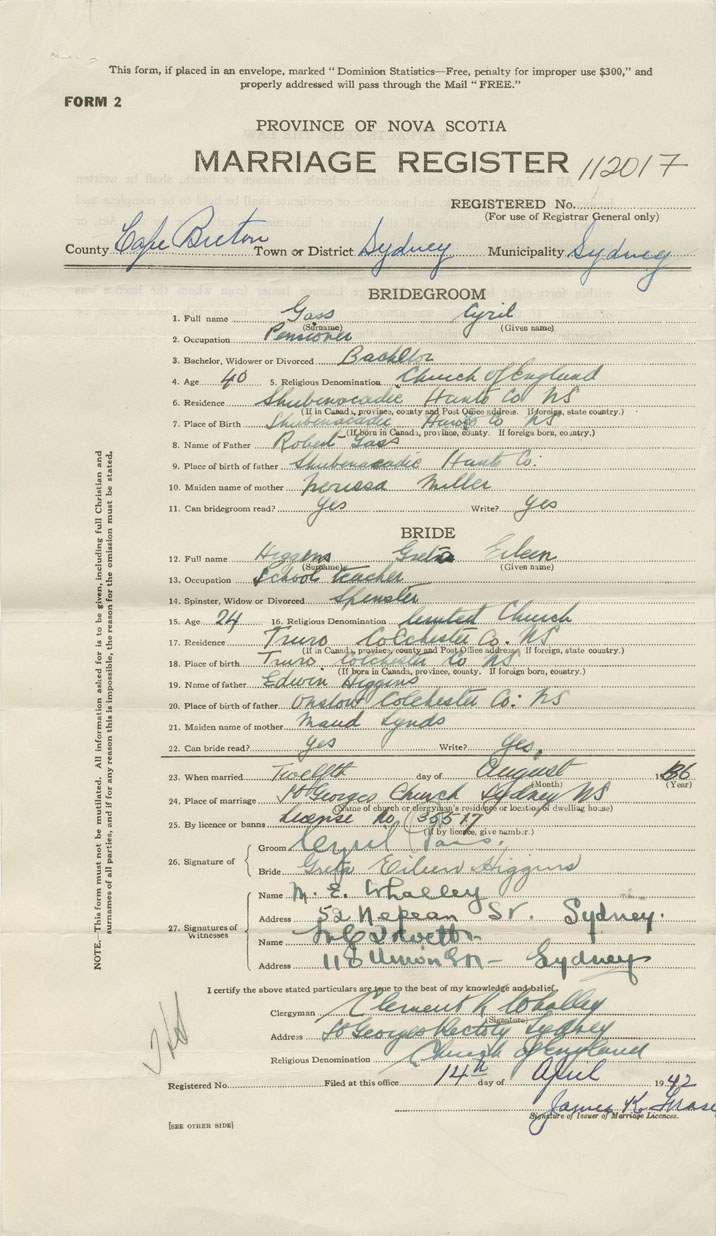 This form, if placed in an envelope, marked "Dominion Statistics—Free, penalty for improper use $300," and
properly addressed will pass through the Mail "FREE."
FORM 2
PROVINCE OF NOVA SCOTIA
MARRIAGE REGISTER 112017
REGISTERED No.
(For use of Registrar General only)
County Cape Breton Town or District Sydney Municipality Sydney
BRIDEGROOM
1. Full name Gass Cyril
(Surname) (Given name)
2. Occupation Pensioner
3. Bachelor, Widower or Divorced Bachelor
4. Age 40 5. Religious Denomination Church of England
6. Residence Shubenacadie Hants Co NS
(If in Canada, province, county and Post Office address. If foreign, state country.)
7. Place of Birth Shubenacadie Hants Co NS
(If born in Canada, province, county. If foreign born, country.)
8. Name of Father Robert Gass
9. Place of birth of father Shubenacadie Hants Co.
10. Maiden name of mother Miller
11. Can bridegroom read? Yes Write? Yes
BRIDE
12. Full name Higgins Greta Eileen
(Surname) (Given name)
13. Occupation School teacher
14. Spinster, Widow or Divorced Spinster
15. Age 24 16. Religious Denomination United Church
17. Residence Truro Colchester Co. NS
(If in Canada, province, county and Post Office address. If foreign, state country.)
18. Place of birth Truro Colchester Co NS
(If born in Canada, province, county. If foreign born, country.)
19. Name of father Edwin Higgins
20. Place of birth of father Onslow Colchester Co: NS
21. Maiden name of mother Maud Lynds
22. Can bride read? Yes Write? Yes.
23. When married Twelfth day of August 19 36
(Month) (Year)
24. Place of marriage St Georges Church Sydney NS
(Name of church or clergyman's residence or location of dwelling house)
25. By licence or banns License No (35517
(If by licence, give number.)
26. Signature of
Groom Cyril Gass.
Bride Greta Eileen Higgins
27. Signatures of Witnesses
Name M. E. Whalley
Address 52 Nepean St. Sydney.
Name
Address 118 Union St — Sydney
I certify the above stated particulars are true to the best of my knowledge and belief.
Clergyman Clement Whalley
(Signature)
Address St Georges Rectory Sydney
Religious Denomination Church of England
Registered No. Filed at this office 14th day of April 19 42
James K. Frase
Signature of Issuer of Marriage Licences.
[SEE OTHER SIDE]
NOTE.—This form must not be mutilated. All information asked for is to be given, including full Christian and
surnames of all parties, and if for any reason this is impossible, the reason for the omission must be stated.